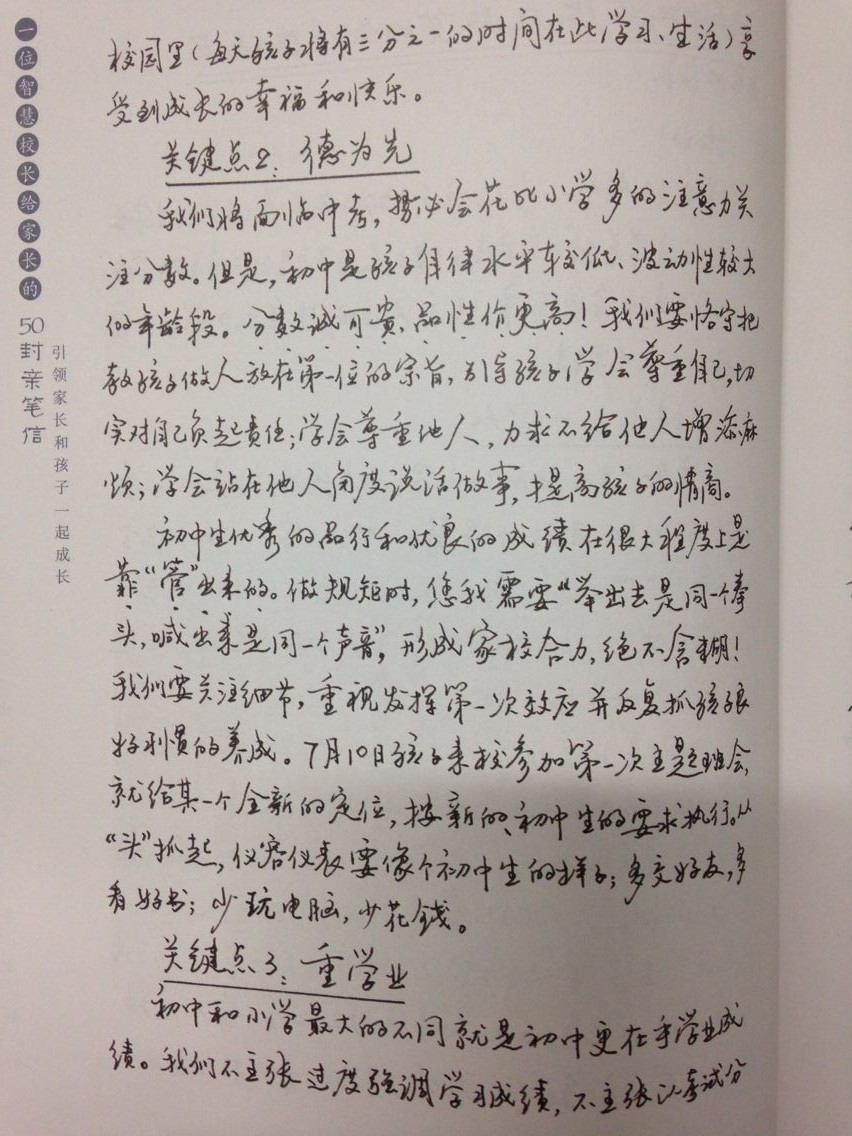 一位智慧校长给家长的
50封亲笔信
引领家长和孩子一起成长
校园里(每天孩子将有三分之一的时间在此学习、生活)享
受到成长的幸福和快乐。
关键点2:德为先
我们将面临中考,势必会花比小学多的注意力关
注分数。但是,初中是孩子自律水平较低、波动性较大
的年龄段。分数诚可贵、品性价更高!我们要恪守把
教孩子做人放在第一位的宗旨,引导孩子学会尊重自己,切
实对自己负起责任;学会尊重他人,力求不给他人增添麻
烦;学会站在他人角度说话做事,提高孩子的情商。
初中生优秀的品行和优良的成绩在很大程度上是
靠“管”出来的。做规矩时,您我需要“举出去是同一个拳
头,喊出来是同一个声音”,形成家校合力,绝不含糊!
我们要关注细节,重视发挥第一次效应并反复抓孩子良
好习惯的养成。7月10日孩子来校参加第一次主题班会,
就给其一个全新的定位,按新的、初中生的要求执行。从
“头”抓起,仪容仪表要像个初中生的样子;多交好友,多
看好书;少玩电脑,少花钱。
关键点3:重学业
初中和小学最大的不同就是初中更在乎学业成
绩。我们不主张过度强调学习成绩,不主张以考试分